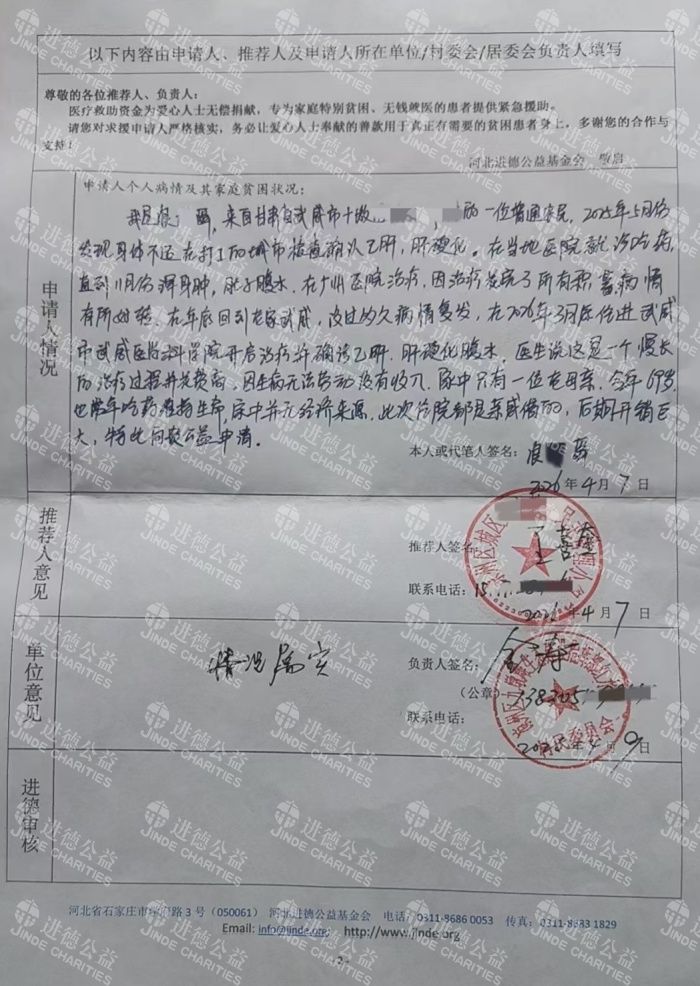 以下内容由申请人、推荐人及申请人所在单位/村委会/居委会负责人填写
尊敬的各位推荐人、负责人:
医疗救助资金为爱心人士无偿捐献，专为家庭特别贫困、无钱就医的患者提供紧急援助。
请您对求援申请人严格核实，务必让爱心人士奉献的善款用于真正有需要的贫困患者身上，多谢您的合作与
支持！
河北进德公益基金会 敬启
申请人情况
申请人个人病情及其家庭贫困状况:
我是 来自甘肃省武威市 的一位普通农民，2025年5月份
发现身体不适在打工的城市检查确认乙肝，肝硬化。在当地医院就诊吃药，
直到11月份浑身肿，肚子腹水，在广州医院治疗，因治疗花完了所有积蓄，病情
有所好转，在年底回到老家武威，没过多久病情复发，在2026年3月底住进武威
市武威医学科学院开启治疗并确诊乙肝、肝硬化腹水，医生说这是一个慢长
的治疗过程并花费高，因生病无法劳动没有收入，家中只有一位老母亲，今年69岁，
也常年吃药维持生命，家中并无经济来源。此次住院都是亲戚借的，后期开销巨
大，特此向 公益申请。
本人或代笔人签名:
2026年4月7日
推荐人意见
推荐人签名:
联系电话:
2026年4月7日
单位意见
情况属实
负责人签名:
(公章) 138305
联系电话:
年4月9日
进德审核
河北省石家庄市 路3号（050061） 河北进德公益基金会 电话: 0311-8686 0053 传真: 0311-8383 1829
Email: info@jinde.org http://www.jinde.org
- 2 -
进德公益
JINDE CHARITIES